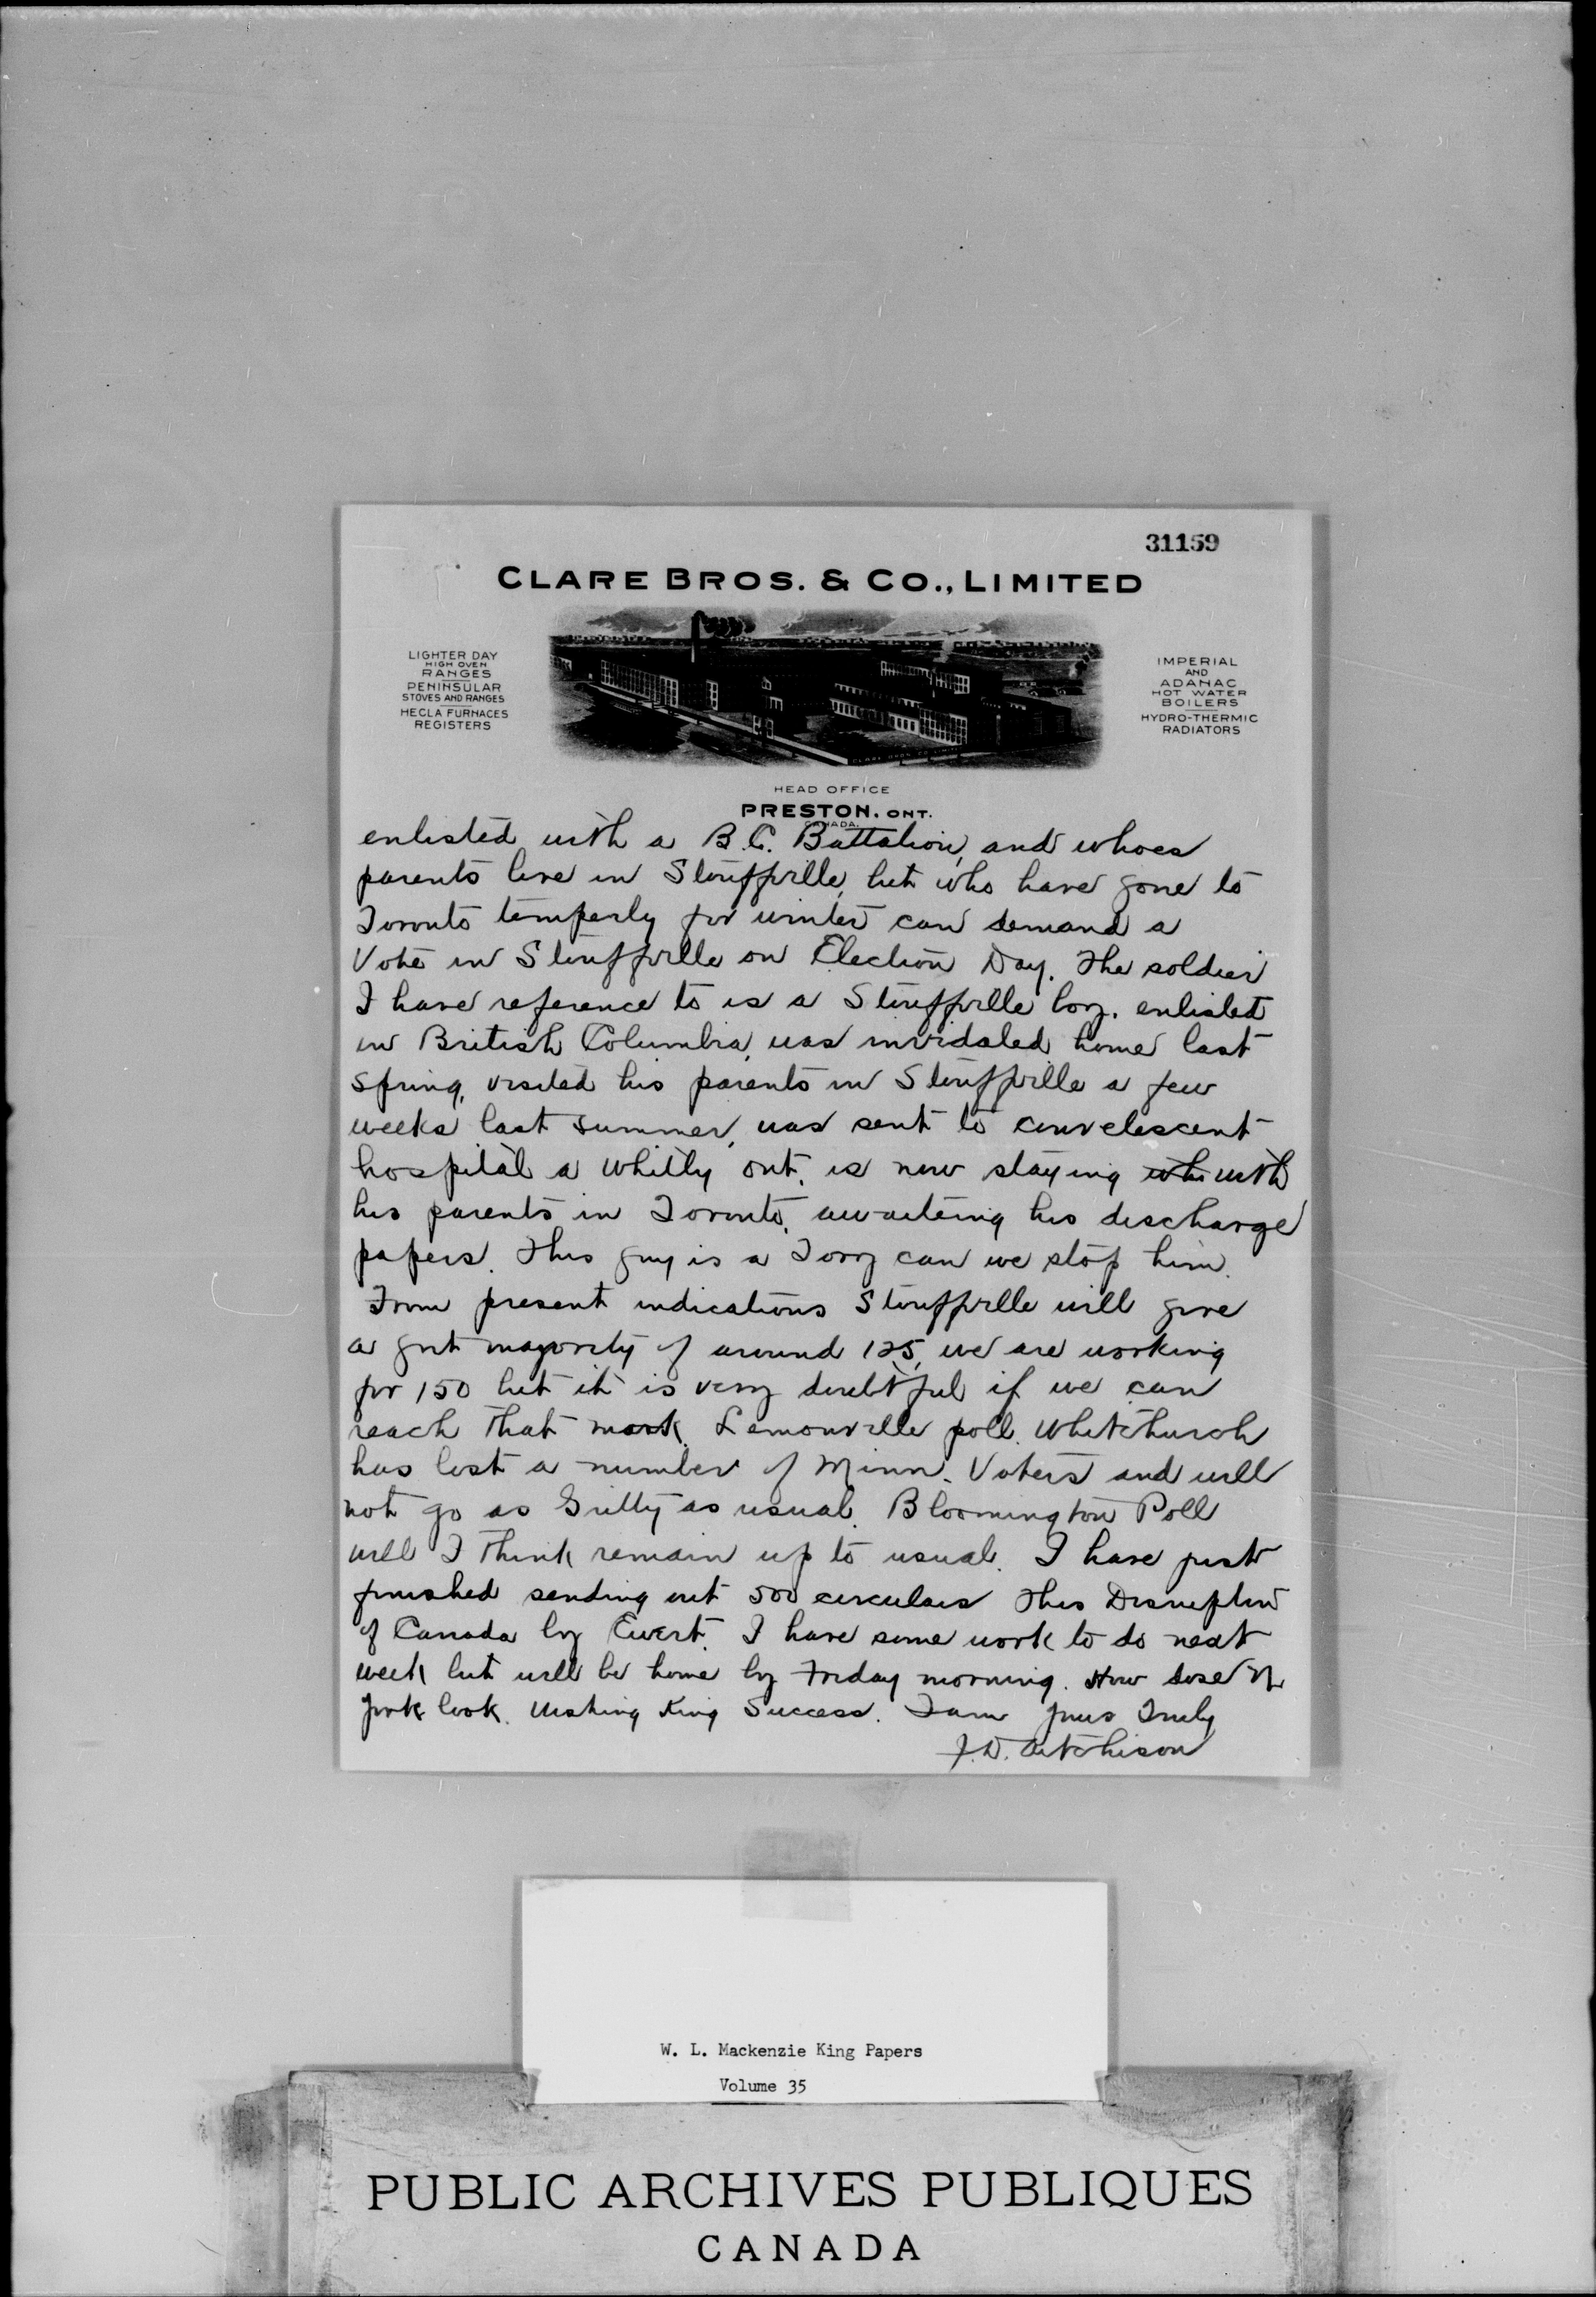 31159
CLARE BROS. & CO., LIMITED
LIGHTER DAY
HIGH OVEN
RANGES
PENINSULAR
STOVES AND RANGES
HECLA FURNACES
REGISTERS
IMPERIAL
AND
ADANAC
HOT WATER
BOILERS
HYDRO-THERMIC
RADIATORS
HEAD OFFICE
PRESTON, ONT.
CANADA.
enlisted with a B.C. Battalion, and whoes
parents live in Stouffville, but who have gone to
Toronto temperly for winter can demand a
Vote in Stouffville on Election Day. The soldier
I have reference to is a Stouffville boy, enlisted
in British Columbia, was invidaled home last
spring, visited his parents in Stouffville a few
weeks last summer, was sent to convelescent
hospital a Whitby Ont. is now staying with
his parents in Toronto, awaiteing his discharge
papers. This guy is a Tory can we stop him.
From present indications Stouffville will give
a grit majority of around 125, we are working
for 150 but it is very doubtful if we can
reach that mark. Lemonville poll. Whitchurch
has lost a number of Minn. Voters and will
not go as Gritty as usual. Bloomington Poll
will I think remain up to usual. I have just
finished sending out 500 circulars This Disruption
of Canada by Ewert. I have some work to do next
week but will be home by Friday morning. How dose N.
York look. Wishing King Success. I am yours Truly
J.D. Aitchison
W. L. Mackenzie King Papers
Volume 35
PUBLIC ARCHIVES PUBLIQUES
CANADA